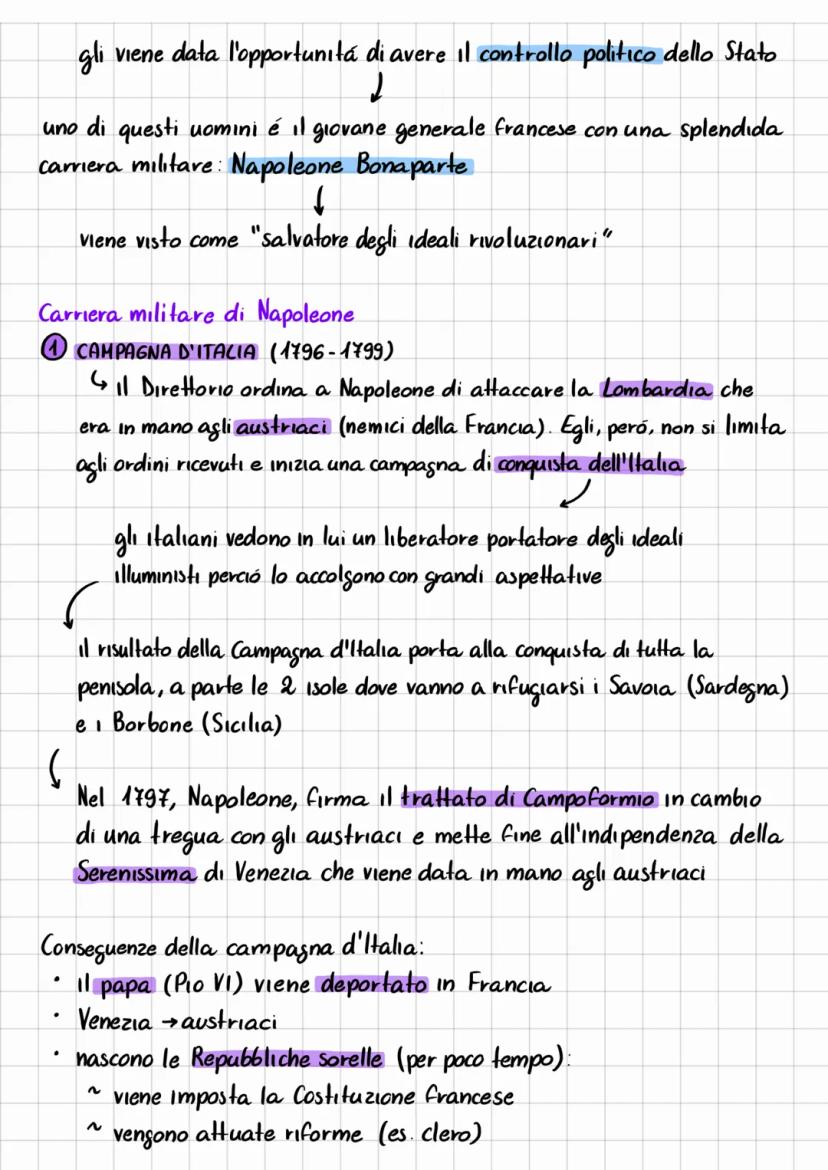 gli viene data l'opportunitá di avere il controllo politico dello Stato
↓
uno di questi uomini é il giovane generale francese con una splendida
carriera militare: Napoleone Bonaparte
↓
viene visto come "salvatore degli ideali rivoluzionari"
Carriera militare di Napoleone
① CAMPAGNA D'ITALIA (1796-1799)
↳ il Direttorio ordina a Napoleone di attaccare la Lombardia che
era in mano agli austriaci (nemici della Francia). Egli, peró, non si limita
agli ordini ricevuti e inizia una campagna di conquista dell'Italia
gli italiani vedono in lui un liberatore portatore degli ideali
illuministi perció lo accolgono con grandi aspettative
il risultato della Campagna d'Italia porta alla conquista di tutta la
penisola, a parte le 2 isole dove vanno a rifugiarsi i Savoia (Sardegna)
e i Borbone (Sicilia)
Nel 1797, Napoleone, firma il trattato di Campoformio in cambio
di una tregua con gli austriaci e mette fine all'indipendenza della
Serenissima di Venezia che viene data in mano agli austriaci
Conseguenze della campagna d'Italia:
· il papa (Pio VI) viene deportato in Francia
· Venezia → austriaci
· nascono le Repubbliche sorelle (per poco tempo):
~ viene imposta la Costituzione francese
~ vengono attuate riforme (es. clero)